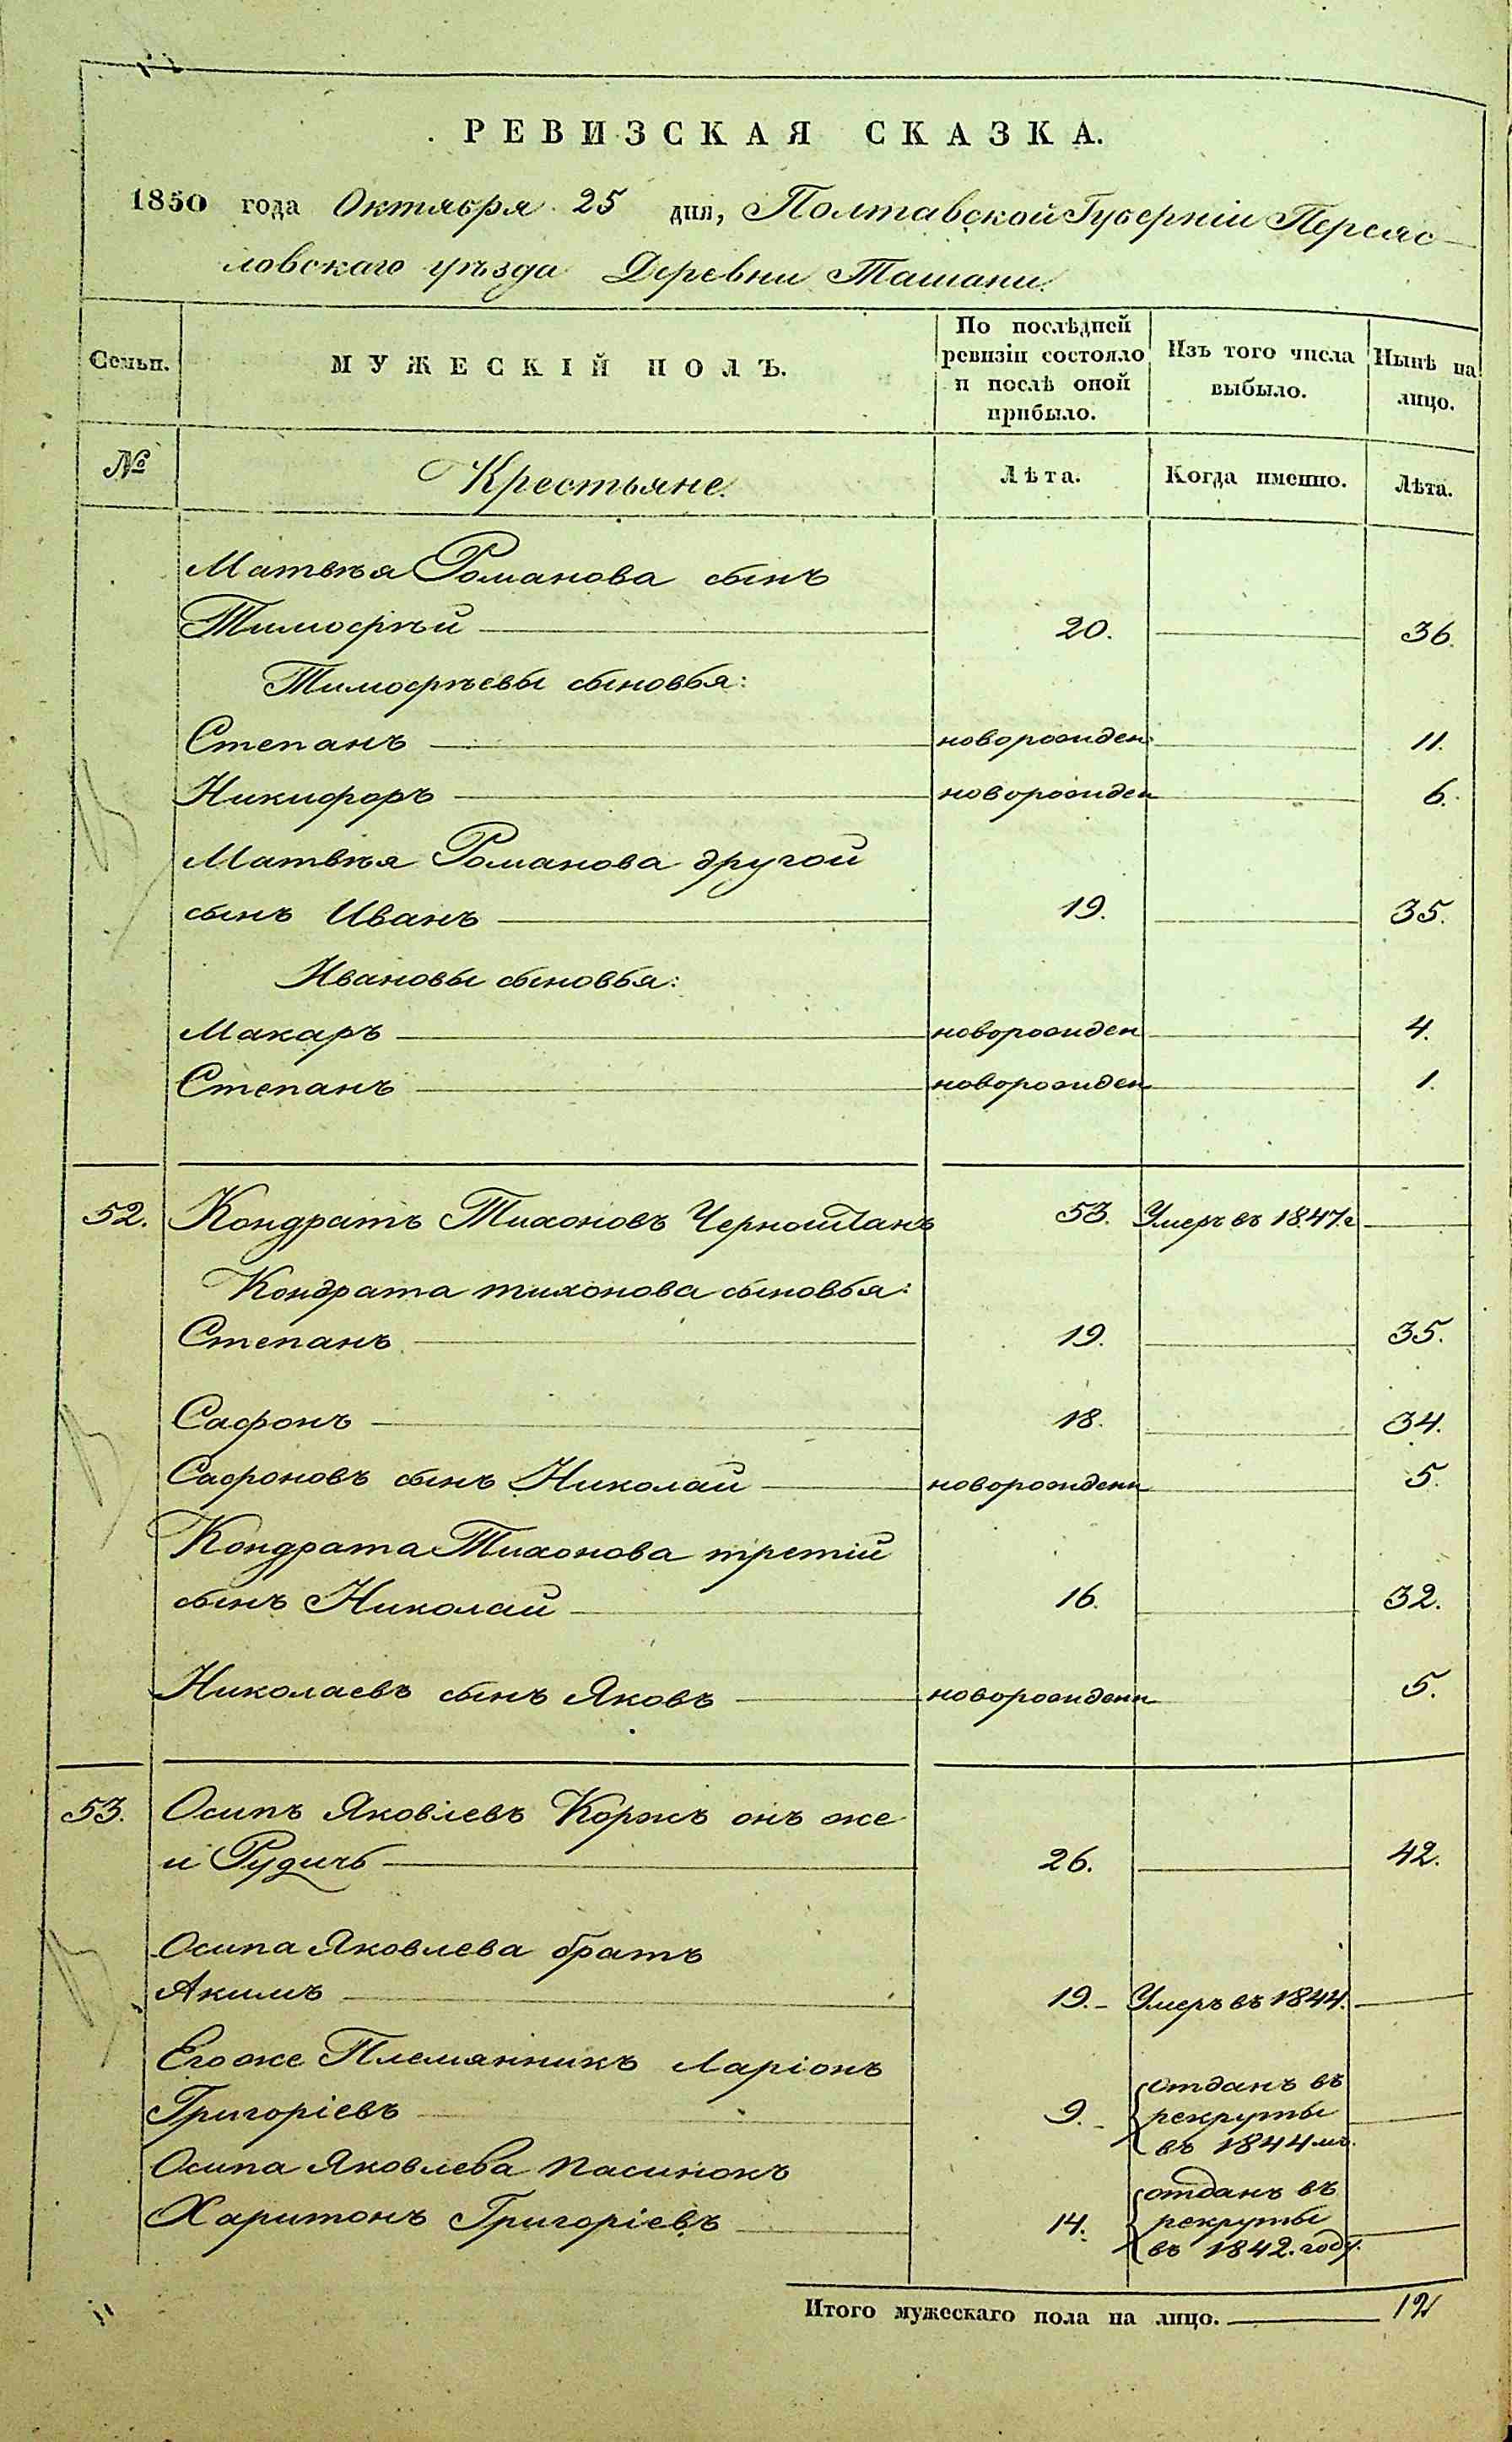 РЕВИЗСКАЯ СКАЗКА.
1850 года Октября 25 дня, Полтавской Губерніи Переяс-
ловскаго уѣзда Деревни Ташани.
Семьи. МУЖЕСКІЙ ПОЛЪ. По послѣдней ревизіи состояло и послѣ оной прибыло. Изъ того числа выбыло. Нынѣ на лицо.
№ Крестьяне. Лѣта. Когда именно. Лѣта.
Матвѣя Романова сынъ
Тимофѣй 20. 36.
Тимофѣевы сыновья:
Степанъ новорожден. 11.
Никифоръ новорожден 6.
Матвѣя Романова другой
сынъ Иванъ 19. 35.
Ивановы сыновья:
Макаръ новорожден 4.
Степанъ новорожден 1.
52. Кондратъ Тихоновъ 53. Умеръ въ 1847г
Кондрата тихонова сыновья:
Степанъ 19. 35.
Сафонъ 18. 34.
Сафоновъ сынъ Николай новорожденн 5.
Кондрата Тихонова третій
сынъ Николай 16. 32.
Николаевъ сынъ Яковъ новорожденн 5.
53. Осипъ Яковлевъ Коржъ онъ же
и Рудичь 26. 42.
Осипа Яковлева братъ
Акимъ 19. Умеръ въ 1844.
Егоже Племянникъ Ларіонъ
Григоріевъ 9. отданъ въ
рекруты
въ 1844 мъ.
Осипа Яковлева пасинокъ
Харитонъ Григоріевъ 14. отданъ въ
рекруты
въ 1842. году.
Итого мужескаго пола на лицо. 12